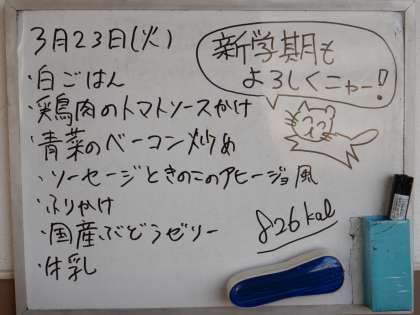 3月23日(火)
・白ごはん
・鶏肉のトマトソースかけ
・青菜のベーコン炒め
・ソーセージときのこのアヒージョ風
・ふりかけ
・国産ぶどうゼリー
・牛乳
新学期も
よろしくニャー!
826kcal